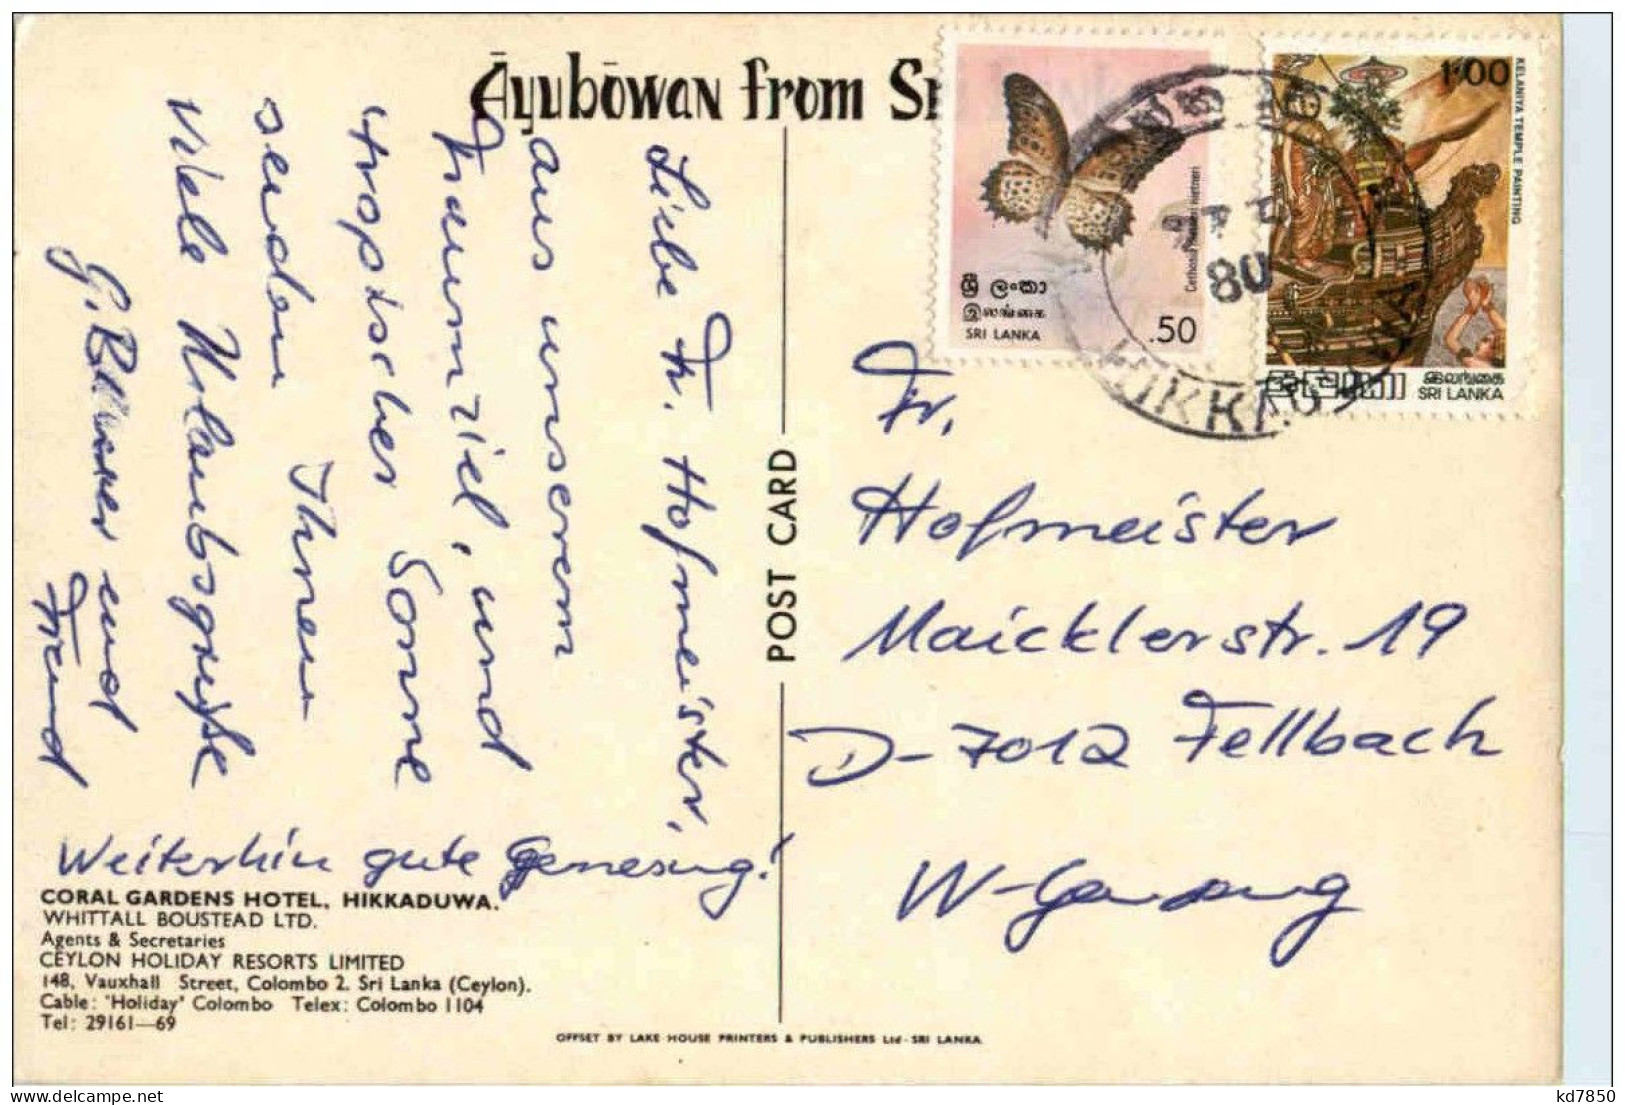 Āyubōwan from Sr
Liebe Fr. Hofmeister,
aus unserem
Traumziel, und
tropischer Sonne
senden Ihnen
Viele Urlaubsgrüße
G. und
Freund
Weiterhin gute Genesung!
CORAL GARDENS HOTEL, HIKKADUWA.
WHITTALL BOUSTEAD LTD.
Agents & Secretaries
CEYLON HOLIDAY RESORTS LIMITED
148, Vauxhall Street, Colombo 2. Sri Lanka (Ceylon).
Cable: 'Holiday' Colombo Telex: Colombo 1104
Tel: 29161—69
POST CARD
OFFSET BY LAKE HOUSE PRINTERS & PUBLISHERS Ltd - SRI LANKA
ශ්‍රී ලංකා
இலங்கை
SRI LANKA
.50
1.00
KELANIYA TEMPLE PAINTING
இலங்கை
SRI LANKA
80
HIKKADUWA
Fr.
Hofmeister
Maicklerstr. 19
D-7012 Fellbach
W-Germany
kd7850